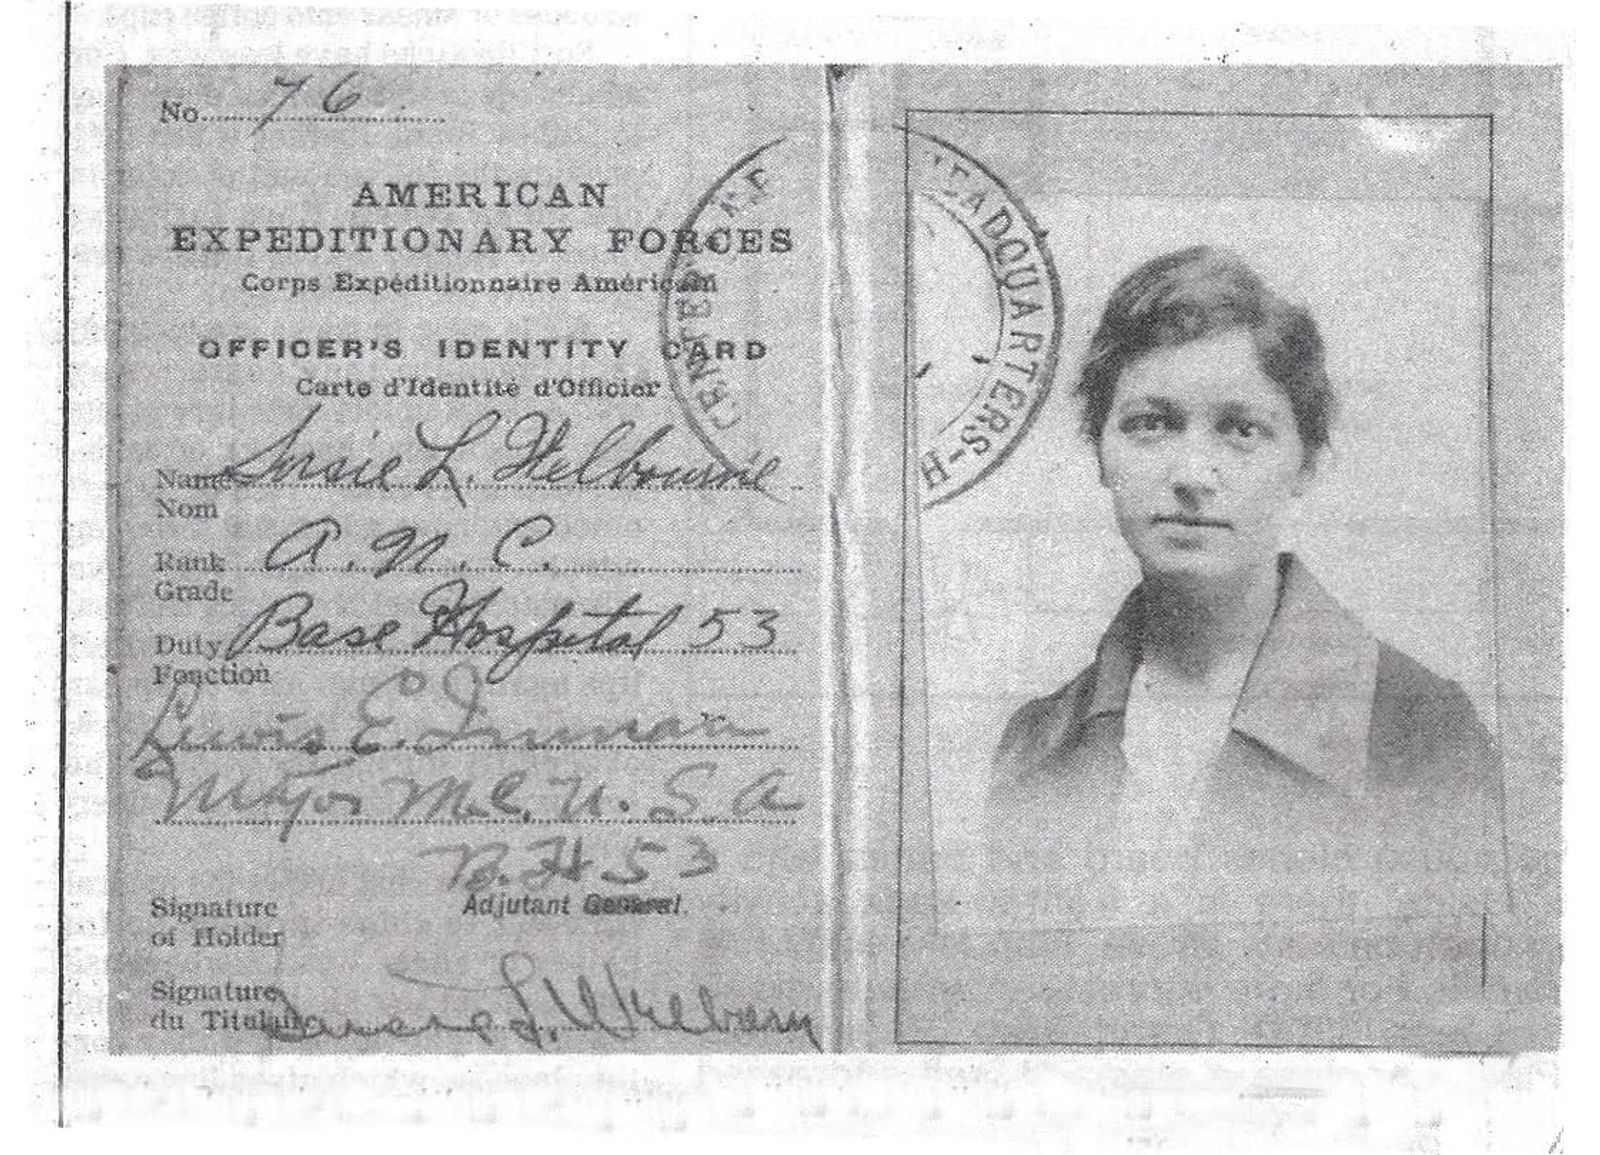 No. 76
AMERICAN
EXPEDITIONARY FORCES
Corps Expéditionnaire Américain
OFFICER'S IDENTITY CARD
Carte d'Identité d'Officier
Name Susie L. Welbourne
Nom
Rank A. N. C.
Grade
Duty Base Hospital 53
Fonction
Lewis E. Inman
Major M.C. U. S. A
B. H 53
Adjutant General.
Signature
of Holder
Signature
du Titulaire L. Welburn
HEADQUARTERS-H